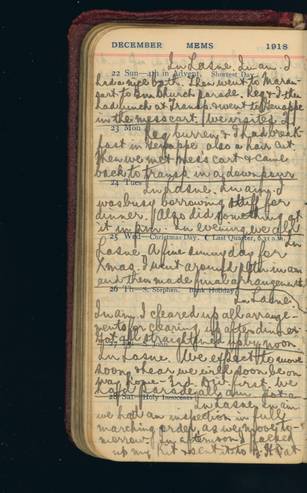 DECEMBER MEMS 1918
In Lasne. In am. I
22 Sun—4th in Advent. Shortest Day
had a nice bath. Then went to
to Bn Church parade. Reg & I
had lunch at Transp. & went to Genappe
in the mess cart.
23 Mon
Reg & I had break-
fast in Genappe also a hair cut.
Then we met mess cart & came
back to transp. in a downpour
24 Tues
In Lasne. In am. I
was busy borrowing stuff for
dinner. Also did something of
it in pm. In evening we all
25 Wed—Christmas Day. Last Quarter, 6.31 a.m.
in
Lasne. A fine sunny day for
Xmas. I went around in am
and then made final arrangements
26 Th—S. Stephen. Bank Holiday
In Lasne.
In am. I cleared up all arrange-
ments for clearing up after dinner
Got all straightened up by noon
In Lasne. We expect to move
soon & hear we will soon be on
way home - But first we
had parade all am. Got a
28 Sat—Holy Innocents
In Lasne. In am
we had an inspection in full
marching order, as we move to-
morrow. In afternoon I packed
up my kit